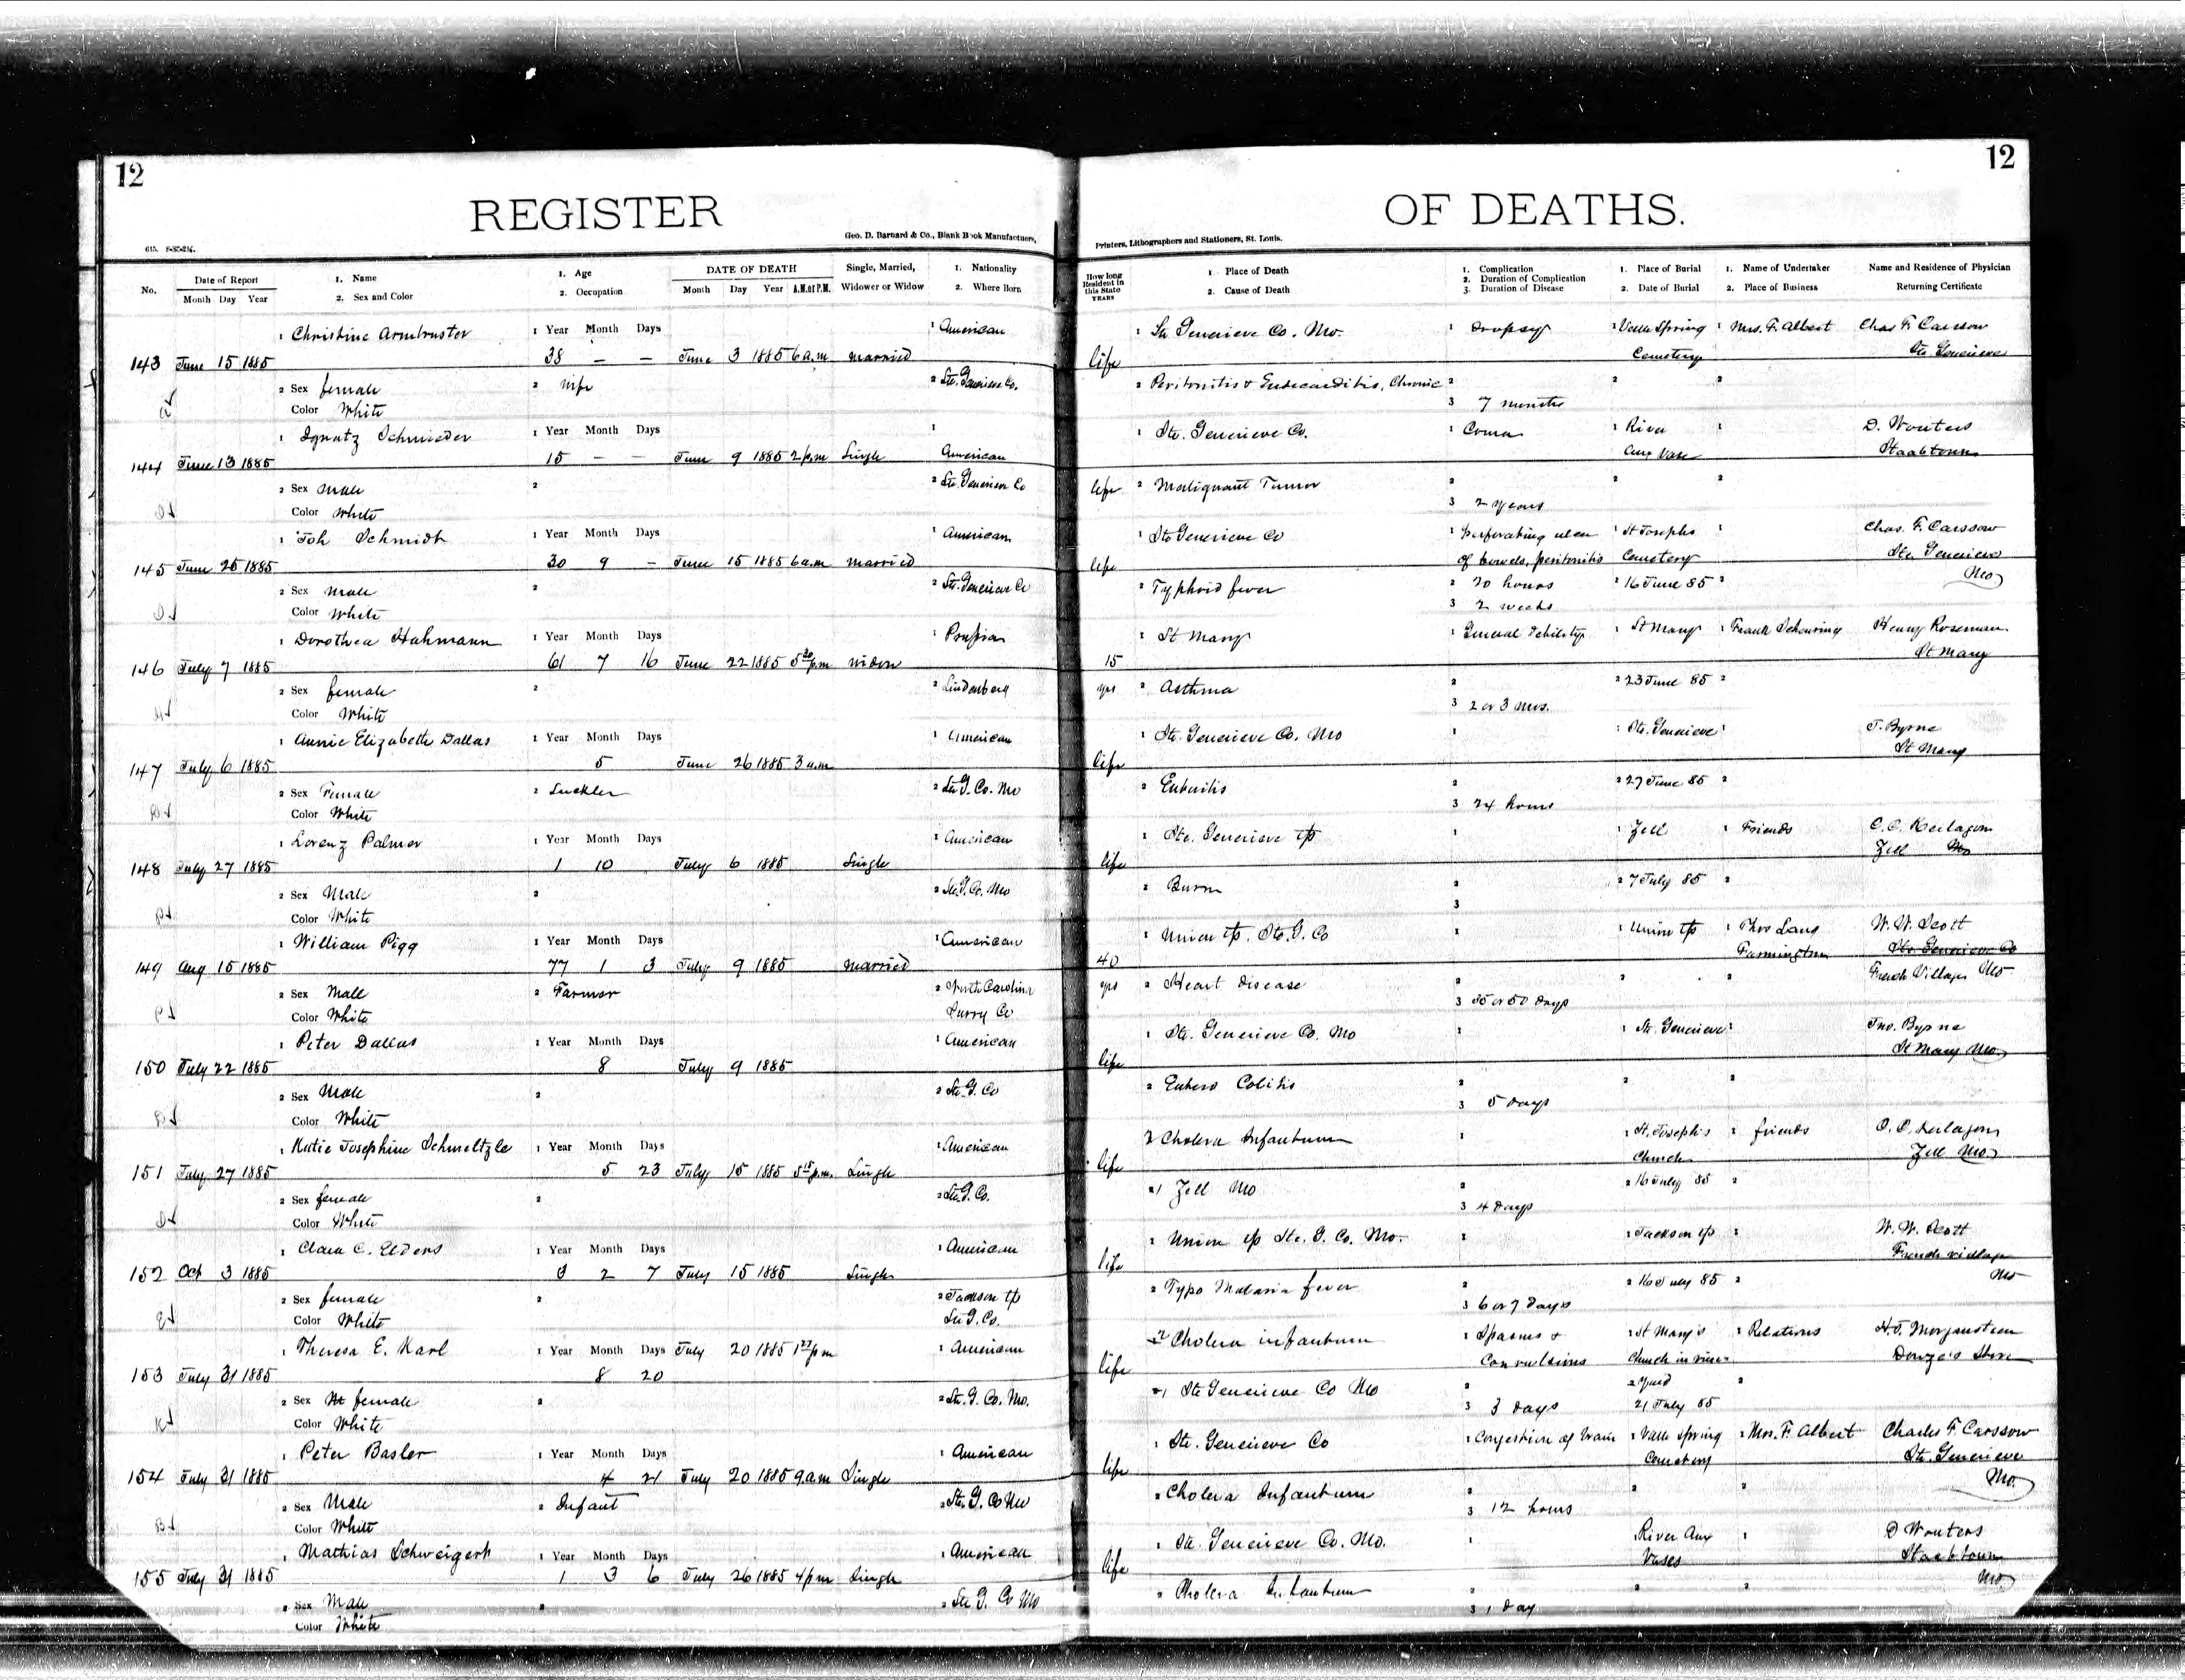 12
12
REGISTER
OF DEATHS.
615. 8-85-2½.
Geo. D. Barnard & Co., Blank Book Manufactuers,
Printers, Lithographers and Stationers, St. Louis.
No. Date of Report Month Day Year 1. Name 2. Sex and Color 1. Age 2. Occupation DATE OF DEATH Month Day Year A.M. or P.M. Single, Married, Widower or Widow 1. Nationality 2. Where Born
How long Resident in this State YEARS 1 Place of Death 2. Cause of Death 1. Complication 2. Duration of Complication 3. Duration of Disease 1. Place of Burial 2. Date of Burial 1. Name of Undertaker 2. Place of Business Name and Residence of Physician Returning Certificate
1 Christine Armbruster 1 Year Month Days 1 American 1 Ste Genevieve Co. Mo. 1 Dropsy 1 Valle Spring 1 Mrs. F. Albert Chas F. Carssow
143 June 15 1885 38 – – June 3 1885 6 a.m married life Cemetery Ste Genevieve
2 Sex female 2 wife 2 Ste. Genevieve Co. 2 Peritonitis & Endocarditis, Chronic 2 2 2
Color White 3 7 months
1 Ignatz Schmieder 1 Year Month Days 1 1 Ste. Genevieve Co. 1 Coma 1 River 1 D. Wouters
144 June 13 1885 15 – – June 9 1885 2 p.m Single American Aux Vase Staabtown
2 Sex Male 2 2 Ste. Genevieve Co life 2 Malignant Tumor 2 2 2
Color White 3 2 years
1 Joh Schmidt 1 Year Month Days 1 American 1 Ste Genevieve Co 1 perforating ulcer 1 St Josephs 1 Chas. F. Carssow
145 June 25 1885 30 9 – June 15 1885 6 a.m married life of bowels, peritonitis Cemetery Ste Genevieve
2 Sex Male 2 2 Ste. Genevieve Co 2 Typhoid fever 2 20 hours 2 16 June 85 2 Mo
Color White 3 2 weeks
1 Dorothea Hahmann 1 Year Month Days 1 Prussian 1 St Mary 1 General debility 1 St Marys 1 Frank Schouring Henry Roseman
146 July 7 1885 61 7 16 June 22 1885 5 30 p.m widow 15 St Mary
2 Sex female 2 2 Lindenberg yrs 2 Asthma 2 2 23 June 85 2
Color White 3 2 or 3 mos.
1 Annie Elizabeth Dallas 1 Year Month Days 1 American 1 Ste. Genevieve Co. Mo 1 1 Ste. Genevieve 1 J. Byrne
147 July 6 1885 5 June 26 1885 3 a.m life St Mary
2 Sex Female 2 Suckler 2 Ste G. Co. Mo 2 Enteritis 2 2 27 June 85 2
Color White 3 24 hours
1 Lorenz Palmer 1 Year Month Days 1 American 1 Ste. Genevieve tp 1 1 Zell 1 Friends
148 July 27 1885 1 10 July 6 1885 Single life Zell Mo
2 Sex Male 2 2 Ste. G. Co. Mo 2 Burn 2 2 7 July 85 2
Color White 3
1 William Pigg 1 Year Month Days 1 American 1 Union tp. Ste. G. Co 1 1 Union tp 1 Thos Lang W. W. Scott
149 Aug 15 1885 77 1 3 July 9 1885 Married 40 Farmington Ste. Genevieve Co
2 Sex Male 2 Farmer 2 North Carolina yrs 2 Heart disease 2 2 2 French Village Mo
Color White Surry Co 3 35 or 50 days
1 Peter Dallas 1 Year Month Days 1 American 1 Ste. Genevieve Co. Mo 1 1 Ste. Genevieve 1 Jno. Byrne
150 July 22 1885 8 July 9 1885 life St Mary Mo
2 Sex Male 2 2 Ste. G. Co 2 Entero Colitis 2 2 2
Color White 3 5 days
1 Katie Josephine Schmeltzle 1 Year Month Days 1 American 2 Cholera Infantum 1 1 St. Joseph's 1 friends
151 July 27 1885 5 23 July 15 1885 5 15 p.m. Single life Church Zell Mo
2 Sex female 2 2 Ste. G. Co. 1 Zell Mo 2 2 16 July 85 2
Color White 3 4 days
1 Clara C. Elders 1 Year Month Days 1 American 1 Union tp Ste. G. Co. Mo. 1 1 Jackson tp 1 W. W. Scott
152 Oct 3 1885 3 2 7 July 15 1885 Single life French village
2 Sex female 2 2 Jackson tp 2 Typo Malaria fever 2 2 16 July 85 2 Mo
Color White Ste G. Co. 3 6 or 7 days
1 Theresa E. Karl 1 Year Month Days July 20 1885 p m 1 American 2 Cholera infantum 1 Spasms & 1 St Mary's 1 Relations
153 July 31 1885 8 20 life Convulsions Church in Denze's Store
2 Sex female 2 2 Ste. G. Co. Mo. 1 Ste Genevieve Co Mo 2 2 yard 2
Color White 3 3 days 21 July 85
1 Peter Basler 1 Year Month Days 1 American 1 Ste. Genevieve Co 1 Congestion of brain 1 Valle Spring 1 Mrs. F. Albert Charles F. Carssow
154 July 31 1885 4 21 July 20 1885 9 a.m Single life Cemetery Ste. Genevieve
2 Sex Male 2 Infant 2 Ste. G. Co Mo 2 Cholera Infantum 2 2 2 Mo.
Color White 3 12 hours
1 Mathias Schweigert 1 Year Month Days 1 American 1 Ste. Genevieve Co. Mo. 1 1 River Aux 1 D Wouters
155 July 31 1885 1 3 6 July 26 1885 4 p m Single life Vases Staabtown
2 Sex Male 2 2 Ste G. Co Mo 2 Cholera Infantum 2 2 2 Mo
Color White 3 1 day